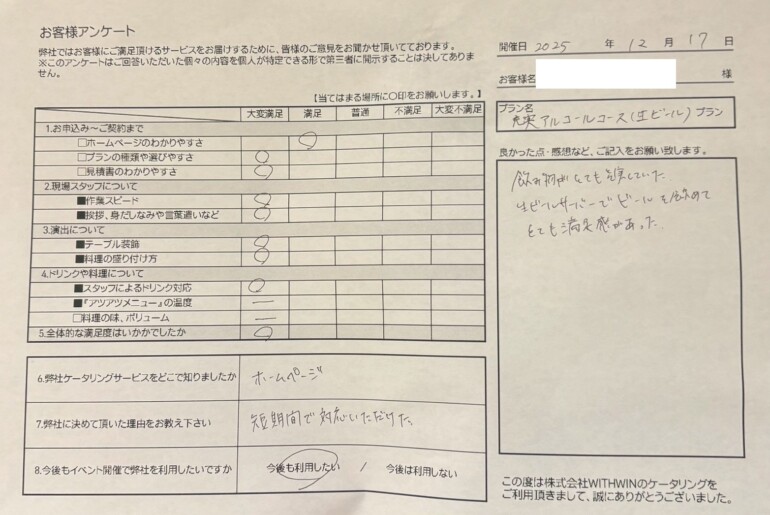 お客様アンケート
弊社ではお客様にご満足頂けるサービスをお届けするために、皆様のご意見をお聞かせ頂いてております。
※このアンケートはご回答いただいた個々の内容を個人が特定できる形で第三者に開示することは決してありません。
【当てはまる場所に〇印をお願いします。】
大変満足 満足 普通 不満足 大変不満足
1.お申込み～ご契約まで
□ホームページのわかりやすさ
□プランの種類や選びやすさ
□見積書のわかりやすさ
2.現場スタッフについて
■作業スピード
■挨拶、身だしなみや言葉遣いなど
3.演出について
■テーブル装飾
■料理の盛り付け方
4.ドリンクや料理について
■スタッフによるドリンク対応
■『アツアツメニュー』の温度
□料理の味、ボリューム
5.全体的な満足度はいかがでしたか
6.弊社ケータリングサービスをどこで知りましたか ホームページ
7.弊社に決めて頂いた理由をお教え下さい 短期間で対応いただけた。
8.今後もイベント開催で弊社を利用したいですか 今後も利用したい / 今後は利用しない
開催日 2025 年 12 月 17 日
お客様名 様
プラン名
充実アルコールコース(生ビール) プラン
良かった点・感想など、ご記入をお願い致します。
飲み物がとても充実していた
生ビールサーバーでビールを飲めて
とても満足感があった
この度は株式会社WITHWINのケータリングを
ご利用頂きまして、誠にありがとうございました。